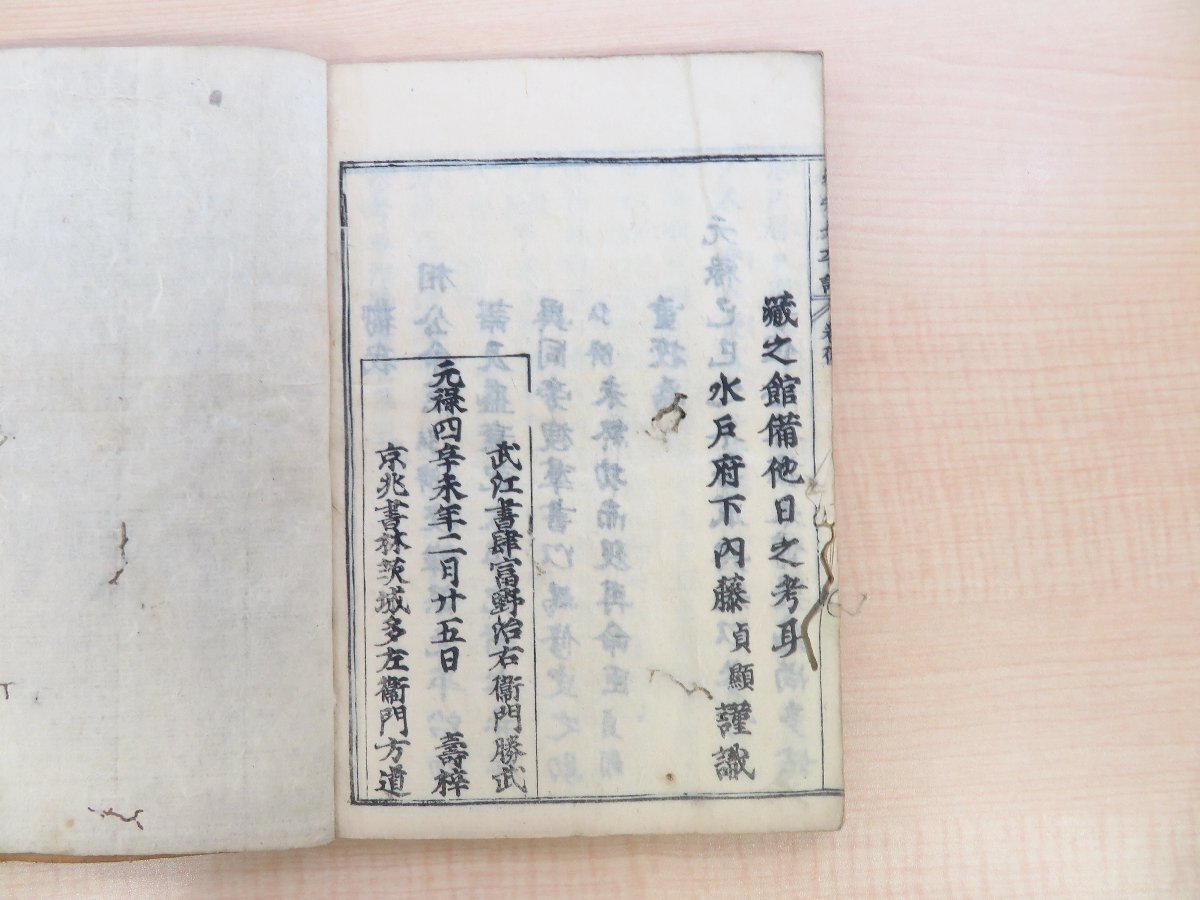 藏之館備他日之考耳
水戶府下內藤貞顯謹識
武江書肆富野治右衞門勝武
元祿四辛未年二月廿五日　壽梓
京兆書林茨城多左衞門方道